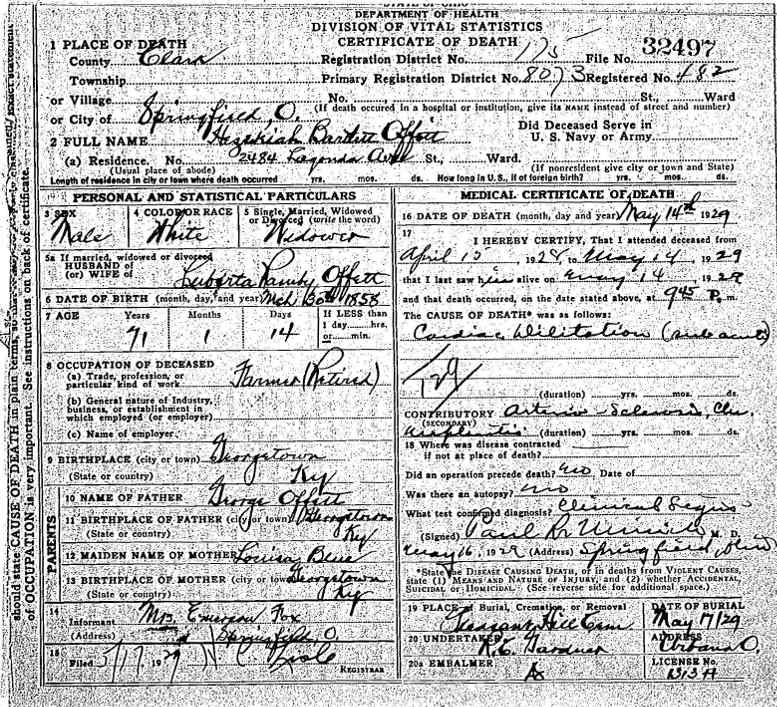 STATE OF OHIO
DEPARTMENT OF HEALTH
DIVISION OF VITAL STATISTICS
CERTIFICATE OF DEATH
1 PLACE OF DEATH
County Clark
Registration District No. 175 File No. 32497
Township
Primary Registration District No. 8073 Registered No. 482
or Village
No. St., Ward
or City of Springfield, O.
(If death occurred in a hospital or institution, give its NAME instead of street and number)
2 FULL NAME Hezekiah Bartlett Offett
Did Deceased Serve in
U. S. Navy or Army
(a) Residence. No. 2484 Lagonda Ave St., Ward.
(Usual place of abode) (If nonresident give city or town and State)
Length of residence in city or town where death occurred yrs. mos. ds. How long in U.S., if of foreign birth? yrs. mos. ds.
PERSONAL AND STATISTICAL PARTICULARS
3 SEX Male
4 COLOR OR RACE White
5 Single, Married, Widowed or Divorced (write the word) Widower
5a If married, widowed or divorced
HUSBAND of
(or) WIFE of
Offett
6 DATE OF BIRTH (month, day, and year) Mch. 30th 1858
7 AGE Years 71 Months 1 Days 14
If LESS than
1 day......hrs.
or......min.
8 OCCUPATION OF DECEASED
(a) Trade, profession, or
particular kind of work Farmer (Retired)
(b) General nature of Industry,
business, or establishment in
which employed (or employer)
(c) Name of employer
9 BIRTHPLACE (city or town) Georgetown
(State or country) Ky
PARENTS
10 NAME OF FATHER George Offett
11 BIRTHPLACE OF FATHER (city or town) Georgetown
(State or country) Ky
12 MAIDEN NAME OF MOTHER Louisa Blue
13 BIRTHPLACE OF MOTHER (city or town) Georgetown
(State or country) Ky
14
Informant Mrs. Emerson Fox
(Address) Springfield O.
15
Filed 5/17 1929
REGISTRAR
MEDICAL CERTIFICATE OF DEATH
16 DATE OF DEATH (month, day and year) May 14th 1929
17
I HEREBY CERTIFY, That I attended deceased from
April 15 1928, to May 14 1929
that I last saw him alive on May 14 1929
and that death occurred, on the date stated above, at 9 45 P. m.
The CAUSE OF DEATH* was as follows:
Cardiac Dilitation (sub acute)
(duration) yrs. mos. ds.
CONTRIBUTORY Arterio-Sclerosis, Chr.
(SECONDARY)
(duration) yrs. mos. ds.
18 Where was disease contracted
if not at place of death?
Did an operation precede death? no Date of
Was there an autopsy? no
What test confirmed diagnosis? Clinical Signs
(Signed) Paul R. M. D.
May 16, 1929 (Address) Springfield, Ohio
*State the DISEASE CAUSING DEATH, or in deaths from VIOLENT CAUSES,
state (1) MEANS AND NATURE OF INJURY, and (2) whether ACCIDENTAL,
SUICIDAL or HOMICIDAL. (See reverse side for additional space.)
19 PLACE of Burial, Cremation, or Removal
Pleasant Hill Cem
DATE OF BURIAL
May 17/29
20 UNDERTAKER
Gardner
ADDRESS
Urbana O.
20a EMBALMER
LICENSE No.
1313 A
should state CAUSE OF DEATH in plain terms, so
of OCCUPATION is very important. See instructions on back of certificate.